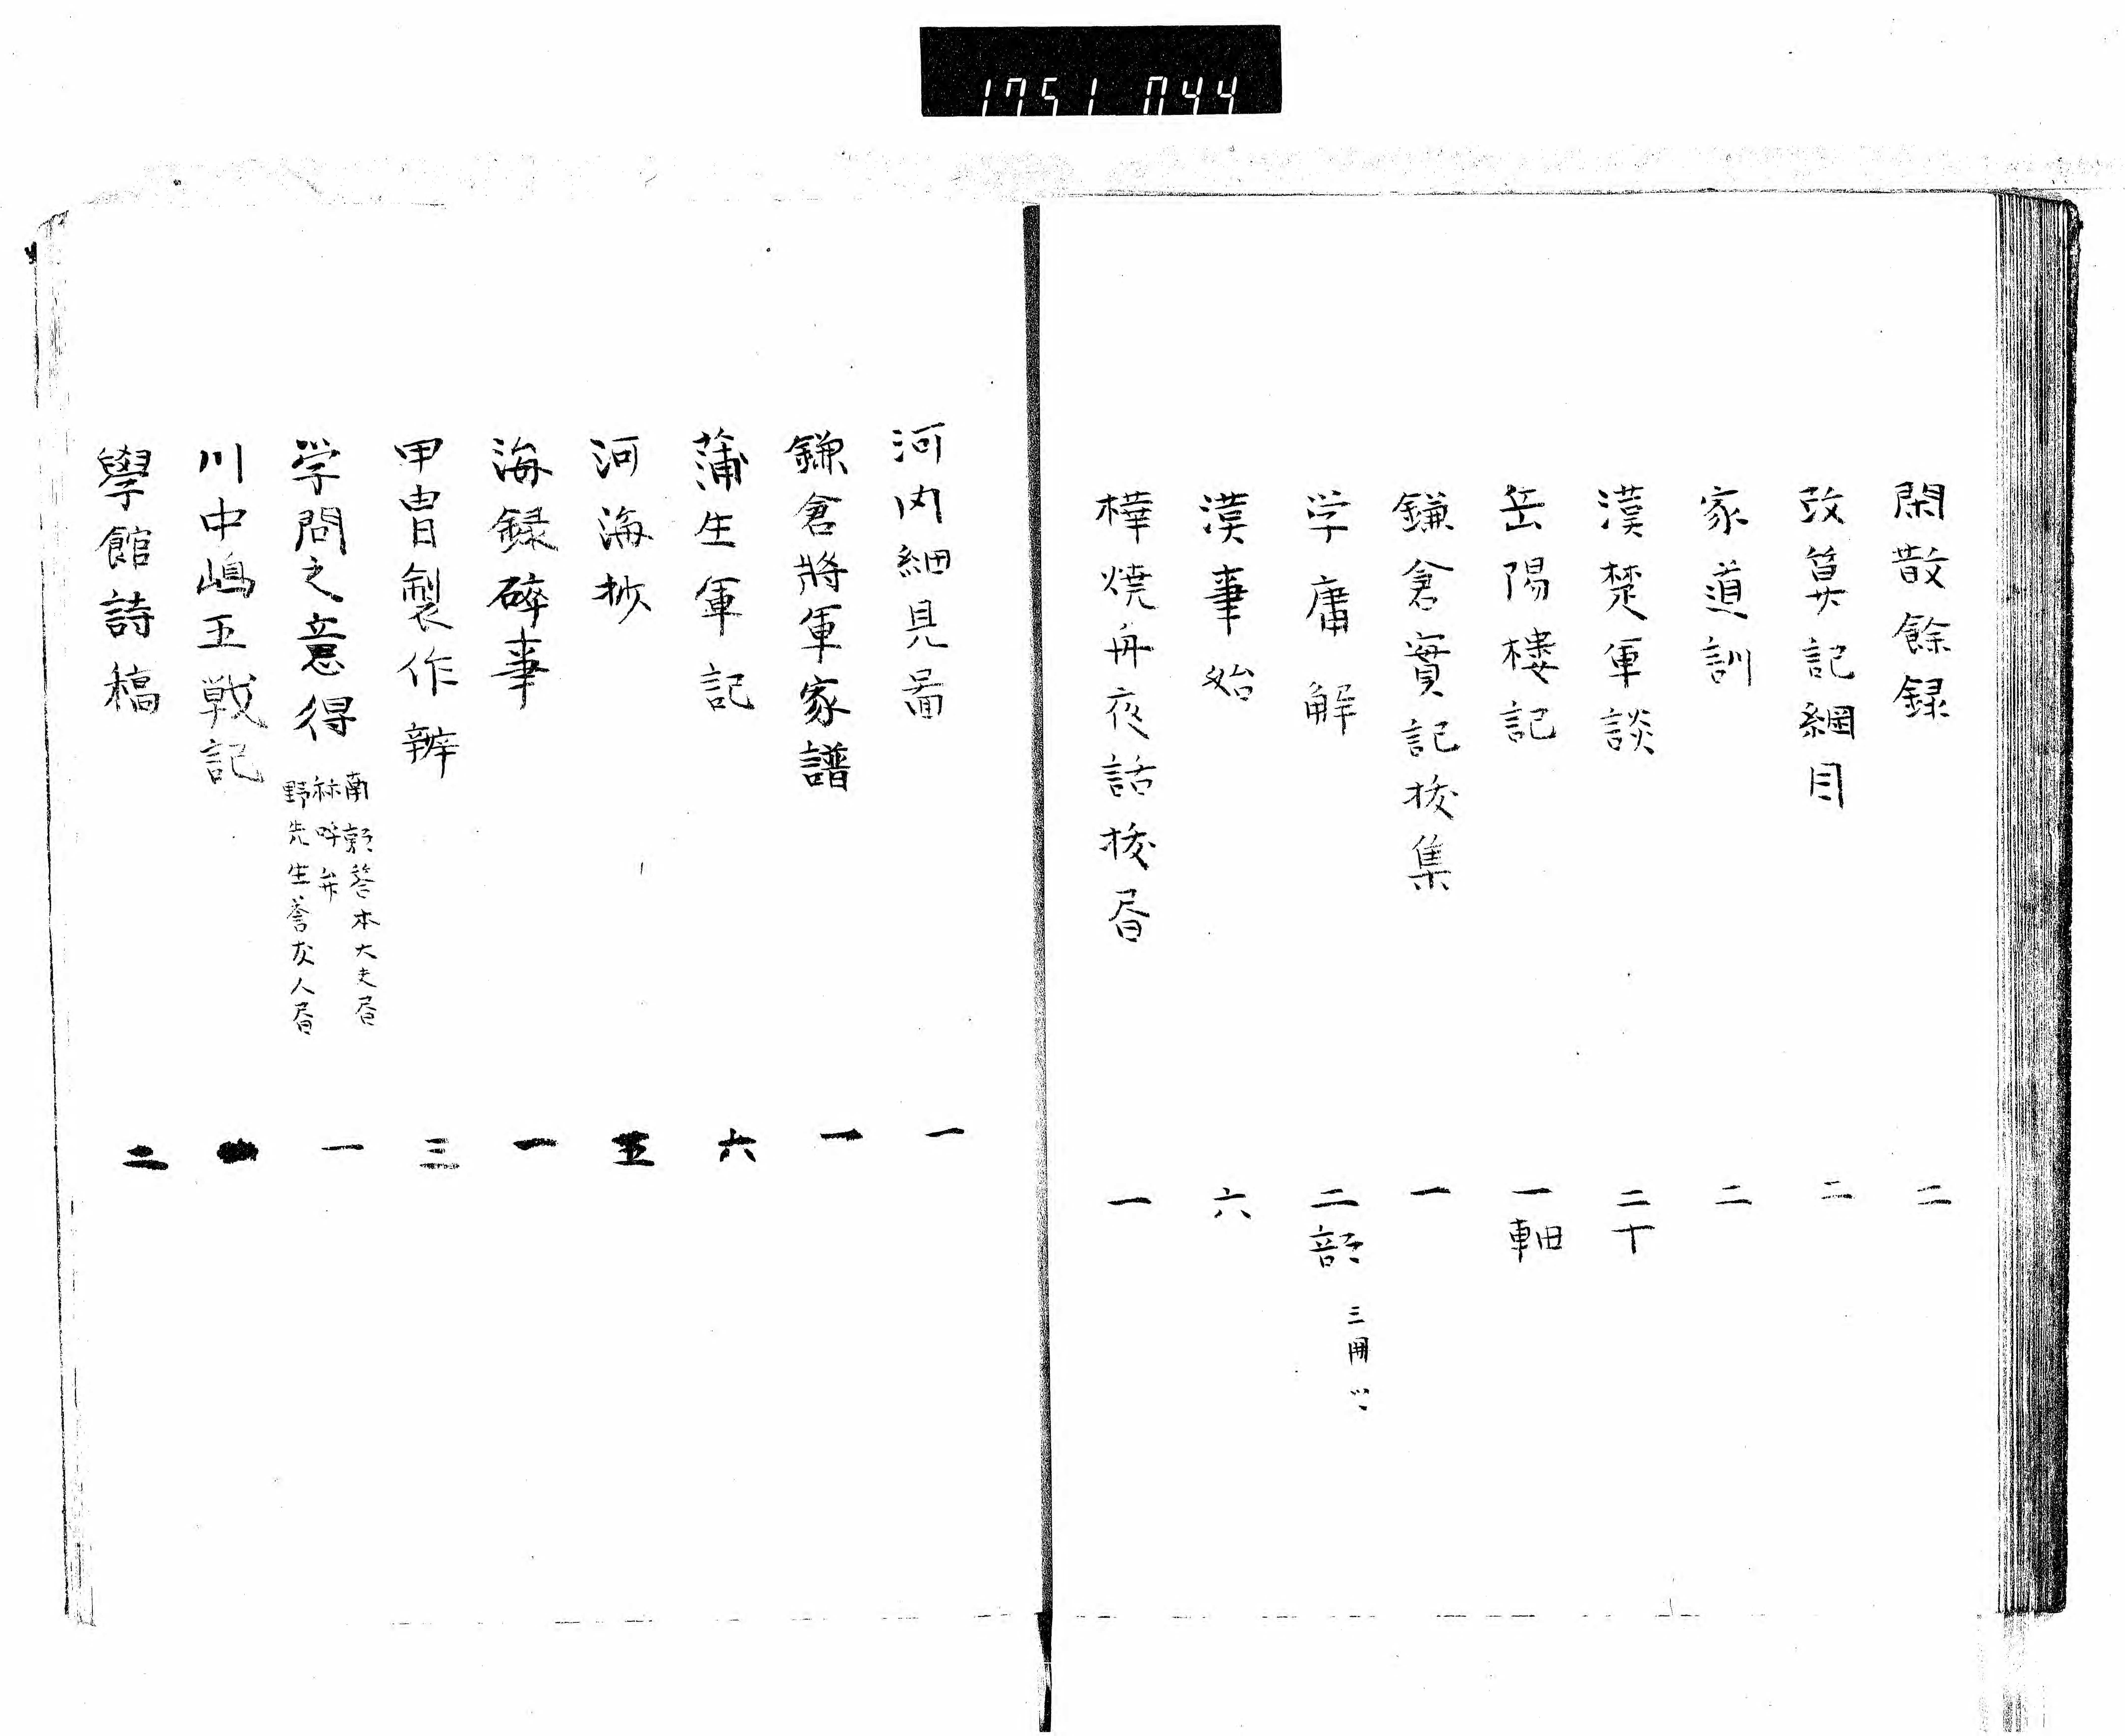 1751 044
閑散餘録 二
改算記綱目 二
家道訓 二
漢楚軍談 二十
岳陽樓記 一軸
鎌倉實記拔集 一
学庸解 二部 三冊ツヽ
漢事始 六
樺焼舟夜話拔昏 一
河内細見啚 一
鎌倉將軍家譜 一
蒲生軍記 六
河海抄 五
海録碎事 一
甲冑製作辨 三
学問之意得 一
南郭答本大夫昏
秝呼弁
野先生答友人昏
川中嶋五戦記
學館詩稿 二